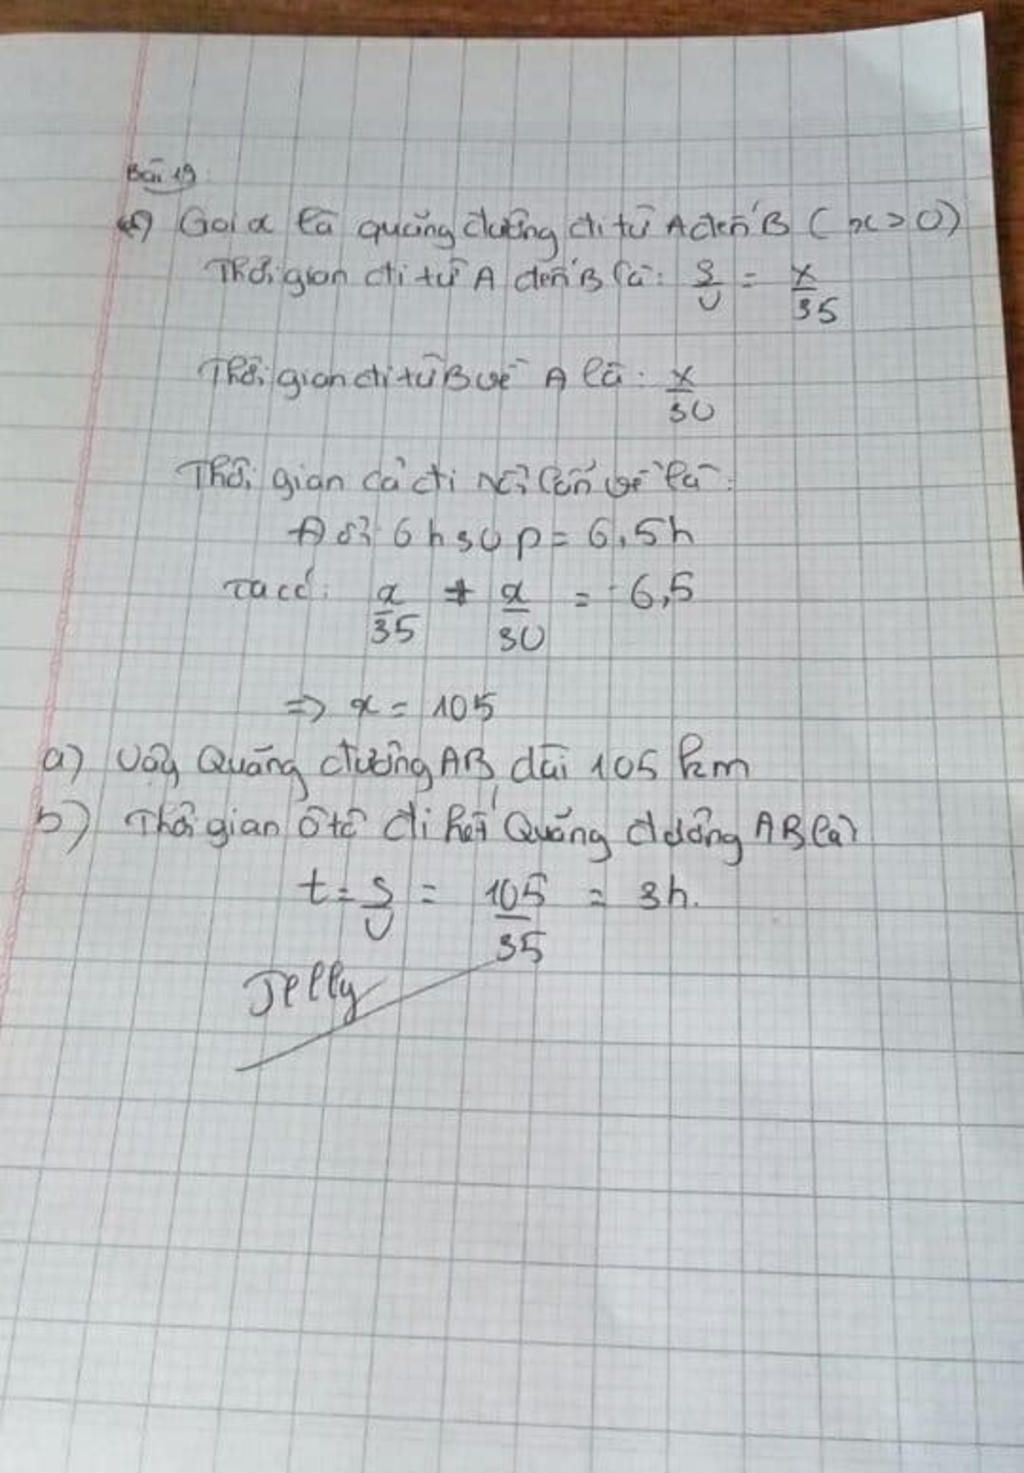 Bài 19
a) Gọi x là quãng đường đi từ A đến B ( x > 0 )
Thời gian đi từ A đến B là: S/v = x/35
Thời gian đi từ B về A là: x/30
Thời gian cả đi lẫn về là:
Đổi 6h30p = 6,5h
Ta có: x/35 + x/30 = 6,5
=> x = 105
a) Vậy Quãng đường AB dài 105 km
b) Thời gian ô tô đi hết Quãng đường AB là
t = S/v = 105/35 = 3h.
Jelly